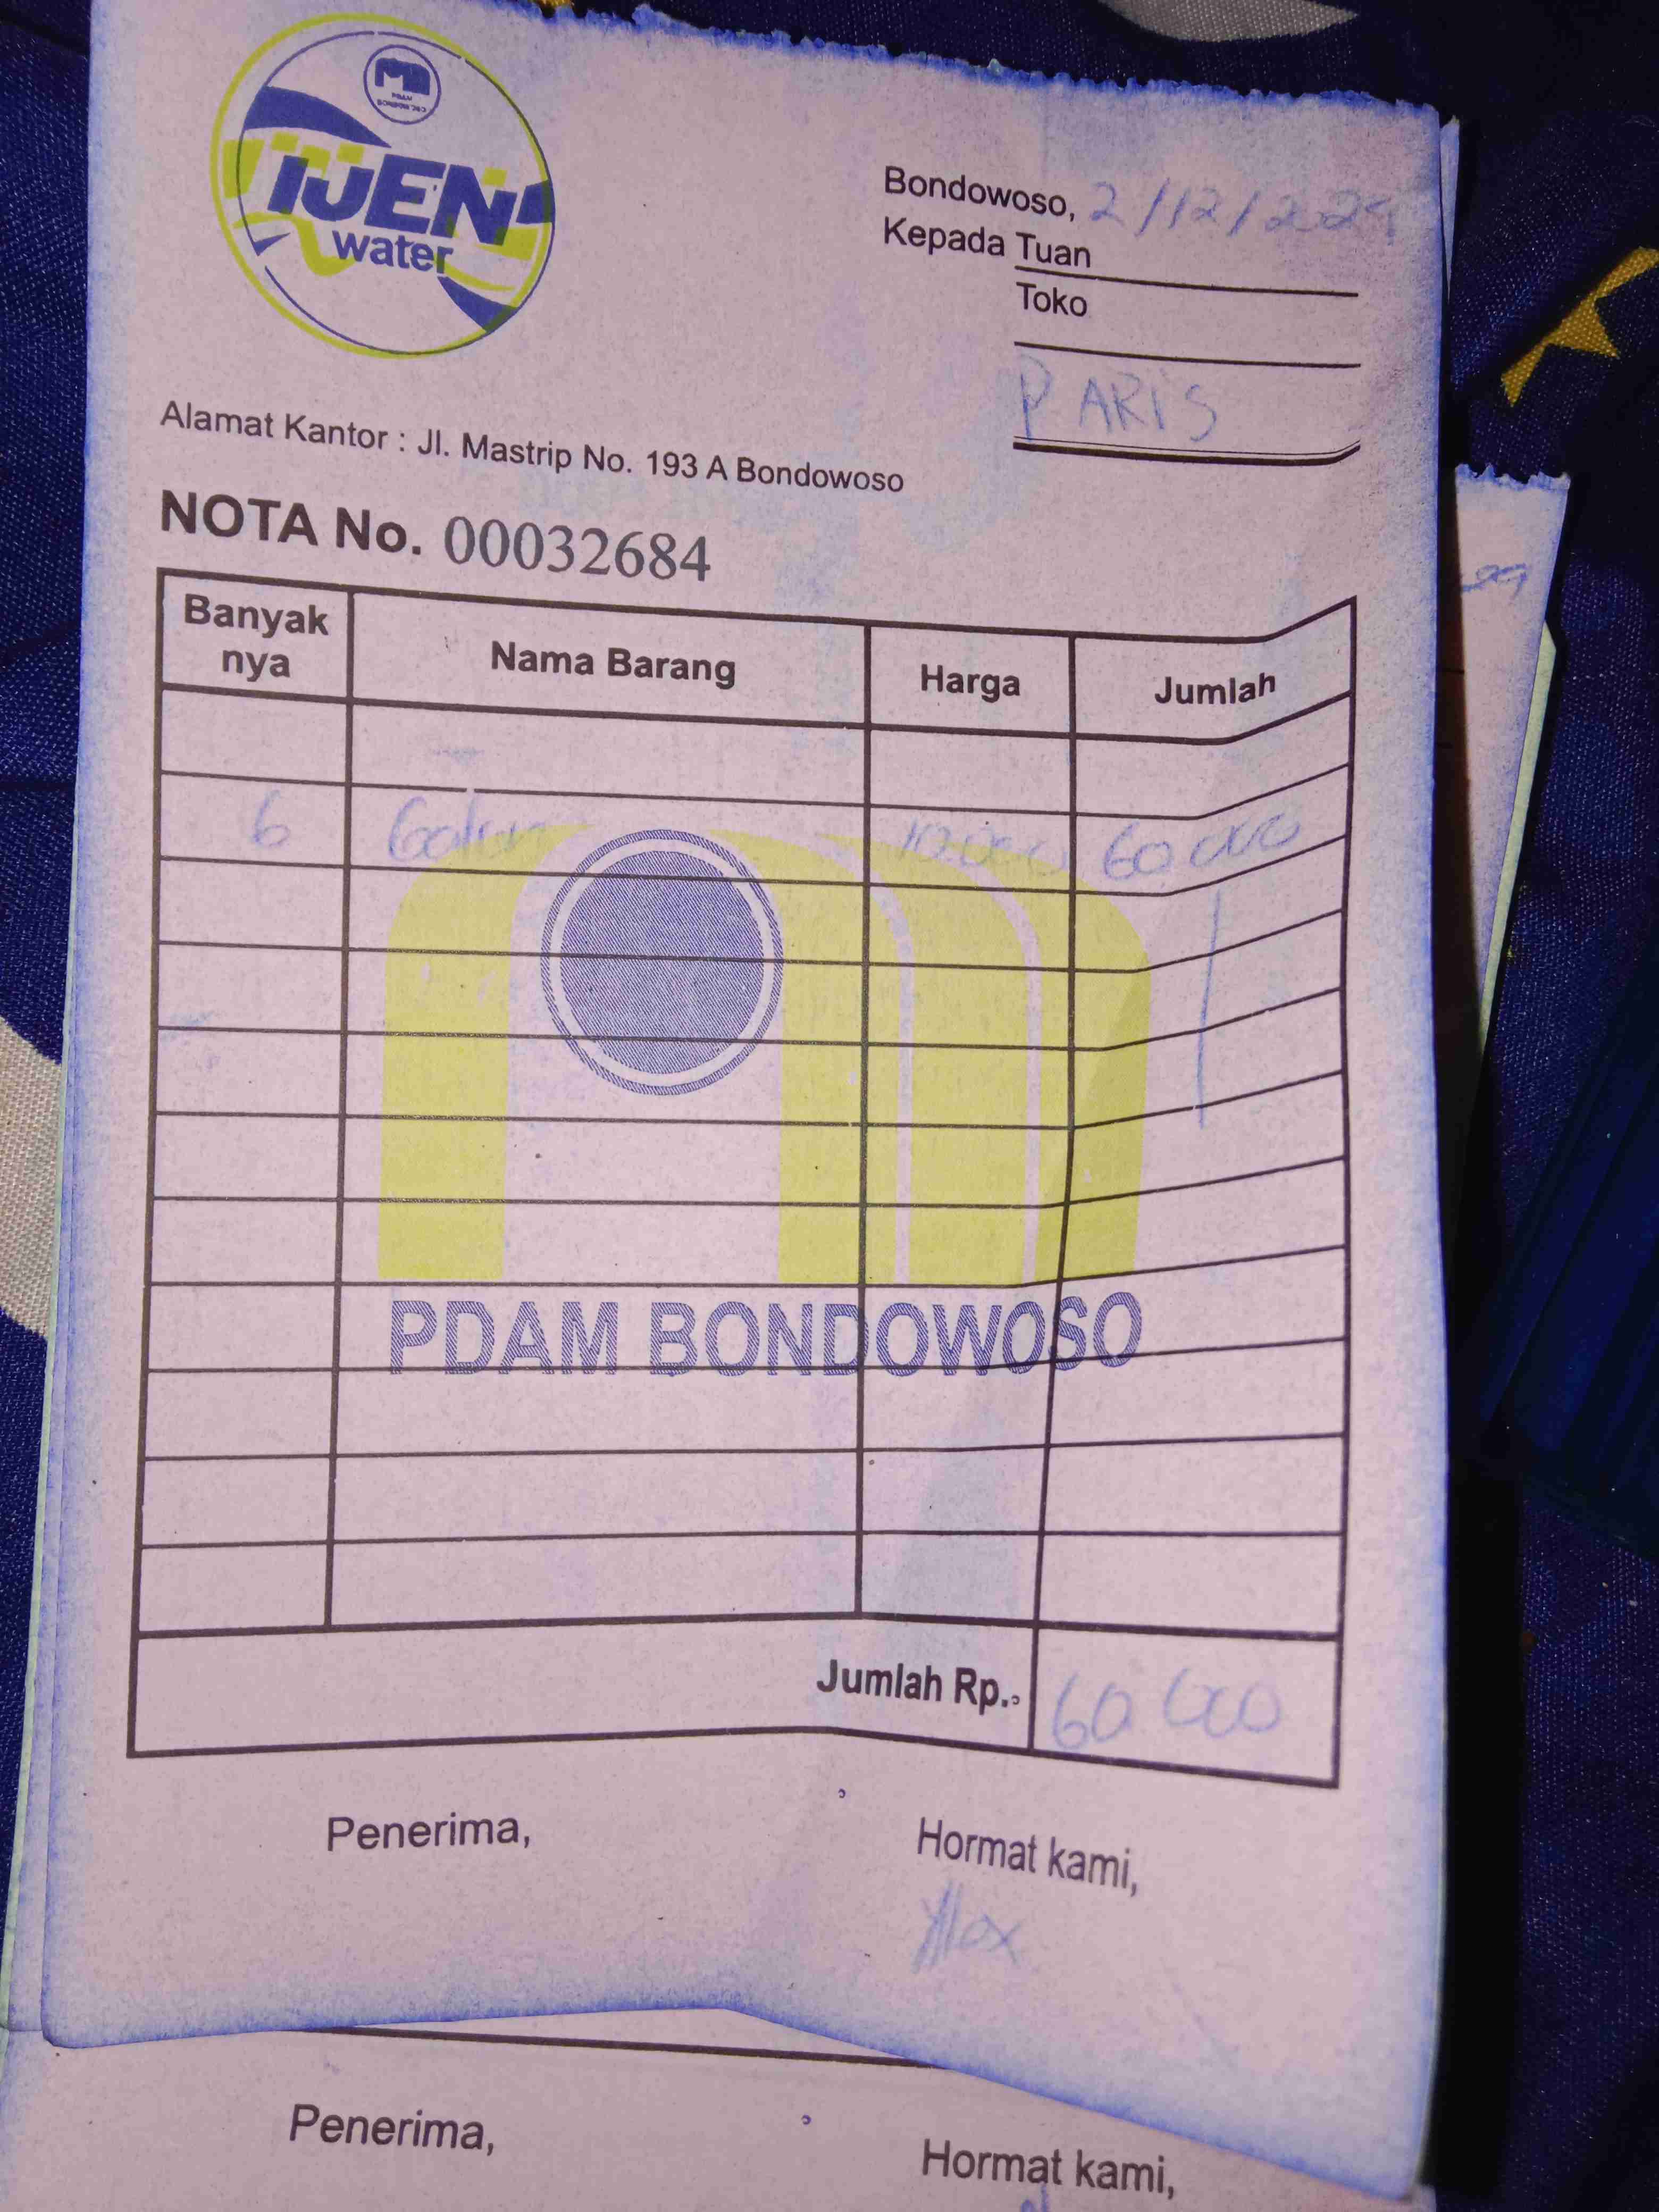 IJEN
water
Bondowoso, 2/12/2024
Kepada Tuan
Toko
PARIS
Alamat Kantor : Jl. Mastrip No. 193 A Bondowoso
NOTA No. 00032684
Banyak nya Nama Barang Harga Jumlah
6 Galon 10.000 60 000
PDAM BONDOWOSO
Jumlah Rp. 60 000
Penerima, Hormat kami,
Penerima, Hormat kami,